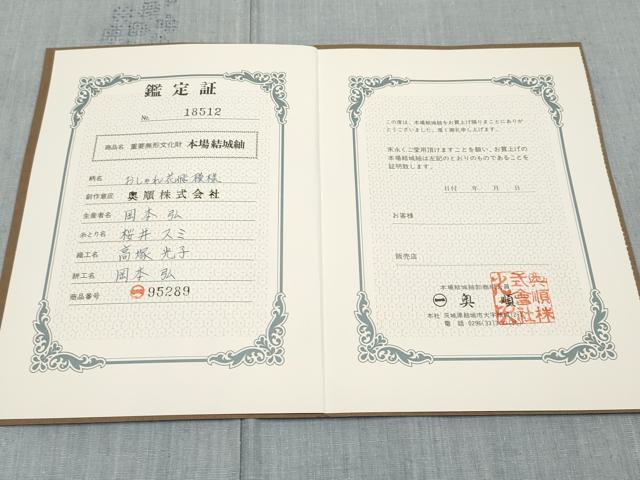 鑑定証
No. 18512
商品名 重要無形文化財 本場結城紬
柄名 おしゃれ花 模様
創作意匠 奥順株式会社
生産者名 岡本 弘
糸とり名 桜井 スミ
織工名 高塚 光子
絣工名 岡本 弘
商品番号 ㊀ 95289
この度は、本場結城紬をお買上げ賜りまことにありが
とうございました。厚く御礼申し上げます。
末永くご愛用頂けますことを願い、お買上げの
本場結城紬は左記のとおりのものであることを
証明致します。
日付 年 月 日
お客様
販売店
本場結城紬卸商
㊀ 奥順
本社 茨城県結城市大字結城
電話 0296(33)
奥順株
式會社